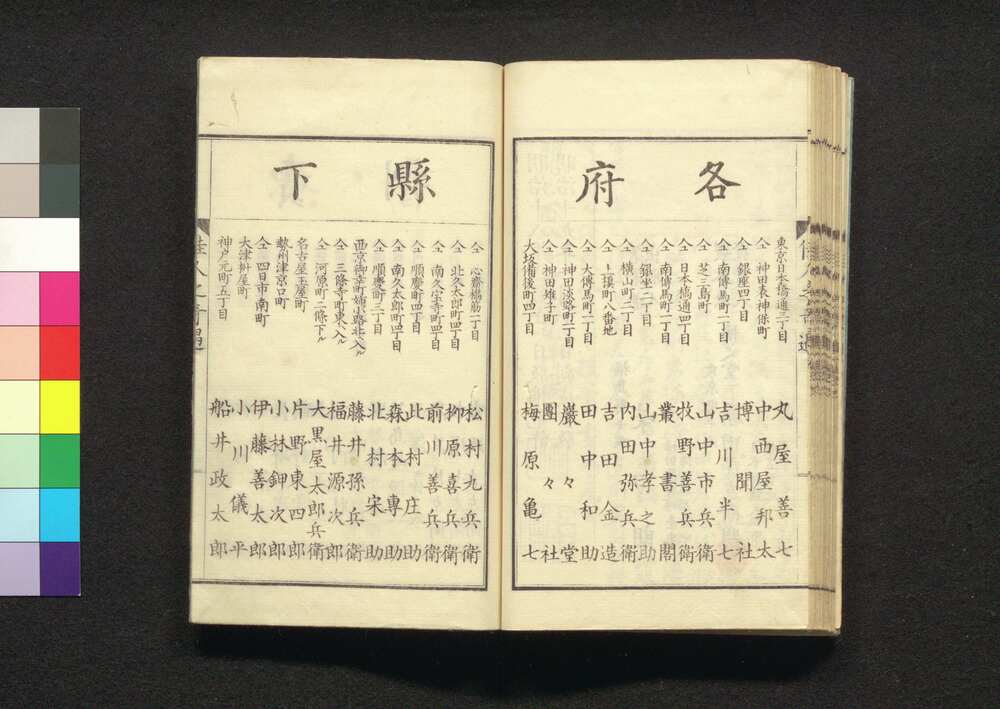 各府
東京日本橋通三丁目 丸屋善七
仝 神田表神保町 中西屋邦太
仝 銀座四丁目 博聞社
仝 南傳馬町一丁目 吉川半七
仝 芝三島町 山中市兵衛
仝 日本橋通四丁目 牧野善兵衛
仝 南傳馬町一丁目 叢書閣
仝 銀坐二丁目 山中孝之助
仝 横山町二丁目 内田弥兵衛
仝 上槇町八番地 吉田金造
仝 大傳馬町二丁目 田中和助
仝 神田淡路町二丁目 巌々堂
仝 神田雉子町 團々社
大坂備後町四丁目 梅原亀七
縣下
仝 心齋橋筋一丁目 松村九兵衛
仝 北久太郎町四丁目 柳原喜兵衛
仝 南久宝寺町四丁目 前川善兵衛
仝 順慶町四丁目 此村庄助
仝 南久太郎町四丁目 森本專助
仝 順慶町三丁目 北村宋助
西京御幸町姉小路北入ル 藤井孫兵衛
仝 三條寺町東入ル 福井源次郎
仝 河原町二條下ル 大黒屋太郎兵衛
名古屋玉屋町 片野東四郎
勢州津京口町 小林鉀次郎
仝 四日市南町 伊藤善太郎
大津舛屋町 小川儀平
神戸元町五丁目 船井政太郎
佳人之奇遇